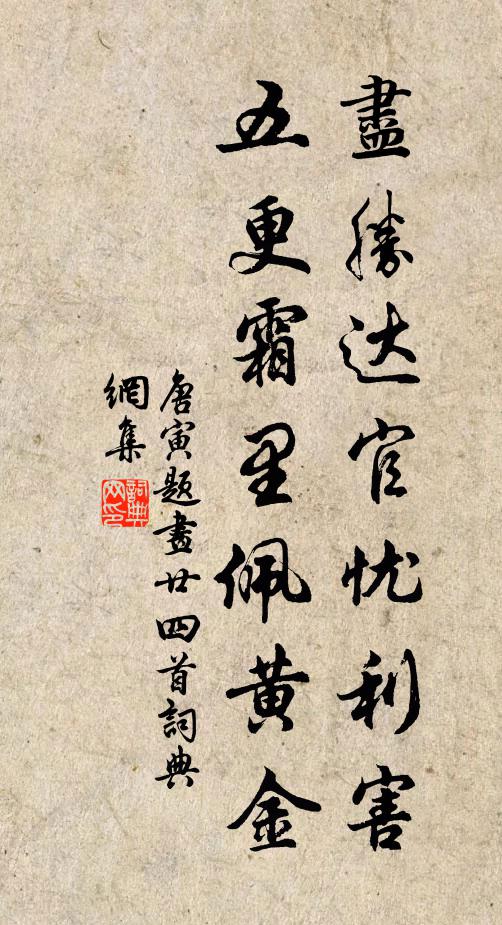 盡勝达官忧利害
五更霜里佩黄金
唐寅題畫廿四首詞典
網集
詞典
网印